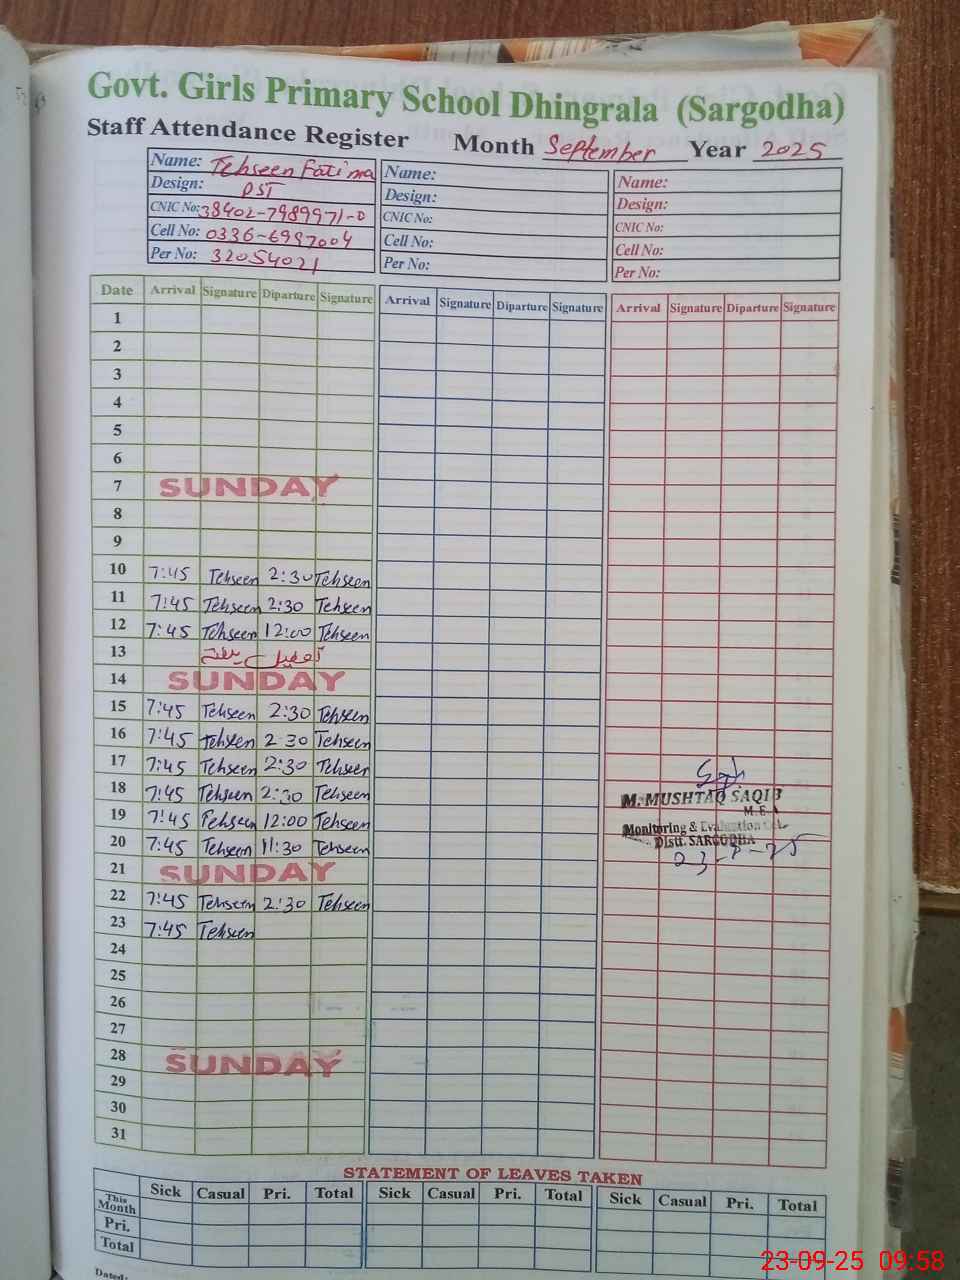 Govt. Girls Primary School Dhingrala (Sargodha)
Staff Attendance Register Month September Year 2025
Name: Tehseen Fatima
Design: PST
CNIC No: 38402-7989971-0
Cell No: 0336-6997004
Per No: 32054021
Name:
Design:
CNIC No:
Cell No:
Per No:
Name:
Design:
CNIC No:
Cell No:
Per No:
Date Arrival Signature Diparture Signature Arrival Signature Diparture Signature Arrival Signature Diparture Signature
1
2
3
4
5
6
7 SUNDAY
8
9
10 7:45 Tehseen 2:30 Tehseen
11 7:45 Tehseen 2:30 Tehseen
12 7:45 Tehseen 12:00 Tehseen
13
14 SUNDAY
15 7:45 Tehseen 2:30 Tehseen
16 7:45 Tehseen 2:30 Tehseen
17 7:45 Tehseen 2:30 Tehseen
18 7:45 Tehseen 2:30 Tehseen
19 7:45 Tehseen 12:00 Tehseen
20 7:45 Tehseen 11:30 Tehseen
21 SUNDAY
22 7:45 Tehseen 2:30 Tehseen
23 7:45 Tehseen
24
25
26
27
28 SUNDAY
29
30
31
M. MUSHTAQ SAQIB
M.E.A
Monitoring & Evaluation
Distt. SARGODHA
STATEMENT OF LEAVES TAKEN
Sick Casual Pri. Total Sick Casual Pri. Total Sick Casual Pri. Total
This Month
Pri.
Total
Dated:
23-09-25 09:58